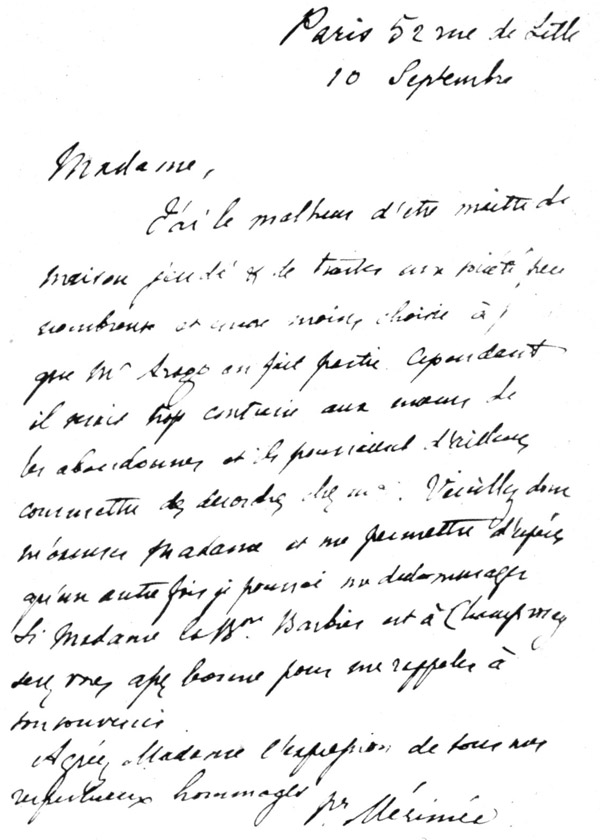 Paris 52 rue de Lille
10 Septembre
Madame,
J'ai le malheur d'être maître de
maison jeudi & de traiter une société peu
nombreuse et encore moins choisie
que Mr Arago en fait partie. Cependant
il serait trop contraire aux mœurs de
les abandonner et ils pourraient d'ailleurs
commettre des désordres chez moi. Veuillez donc
m'excuser Madame et me permettre d'espérer
qu'une autre fois je pourrai me dédommager
Si Madame la Bne Barbier est à Champrosay
serez vous assez bonne pour me rappeler à
son souvenir
Agréez Madame l'expression de tous mes
respectueux hommages
Pr Mérimée